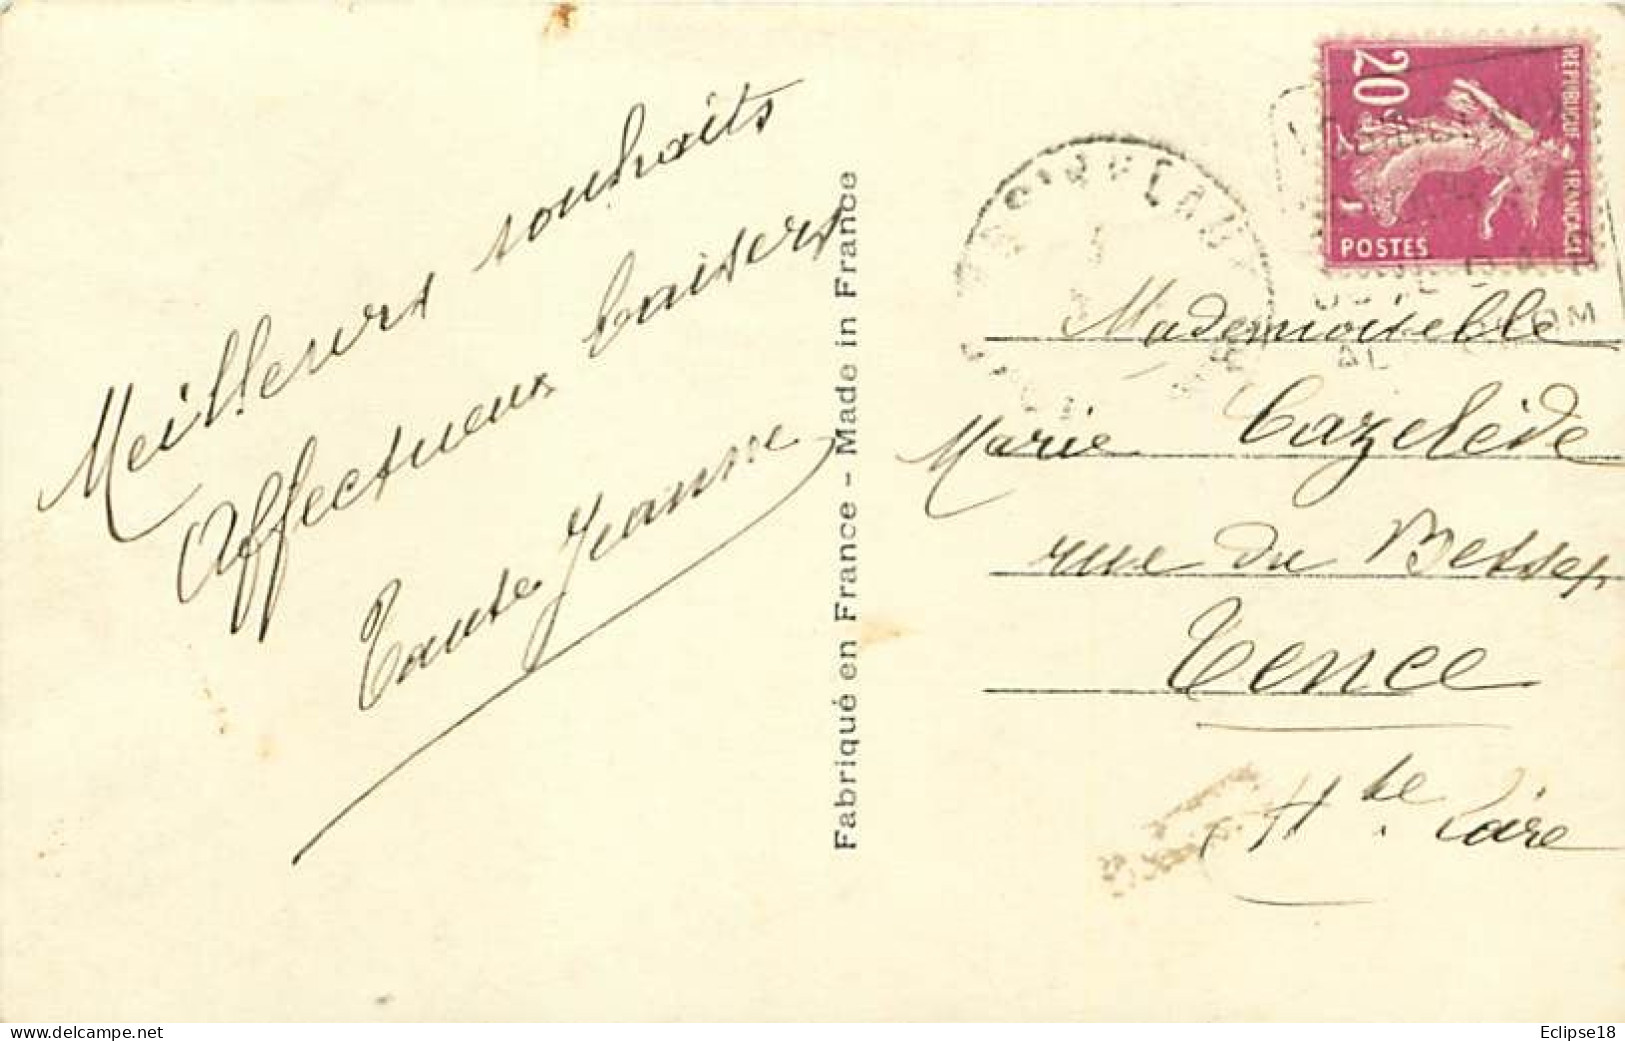 Meilleurs souhaits
Affectueux baisers
Tante Jeanne
Fabriqué en France - Made in France
REPUBLIQUE FRANCAISE
20
POSTES
Mademoiselle
Marie Cazelède
rue du Besset
Tence
Hte Loire
www.delcampe.net
Eclipse18